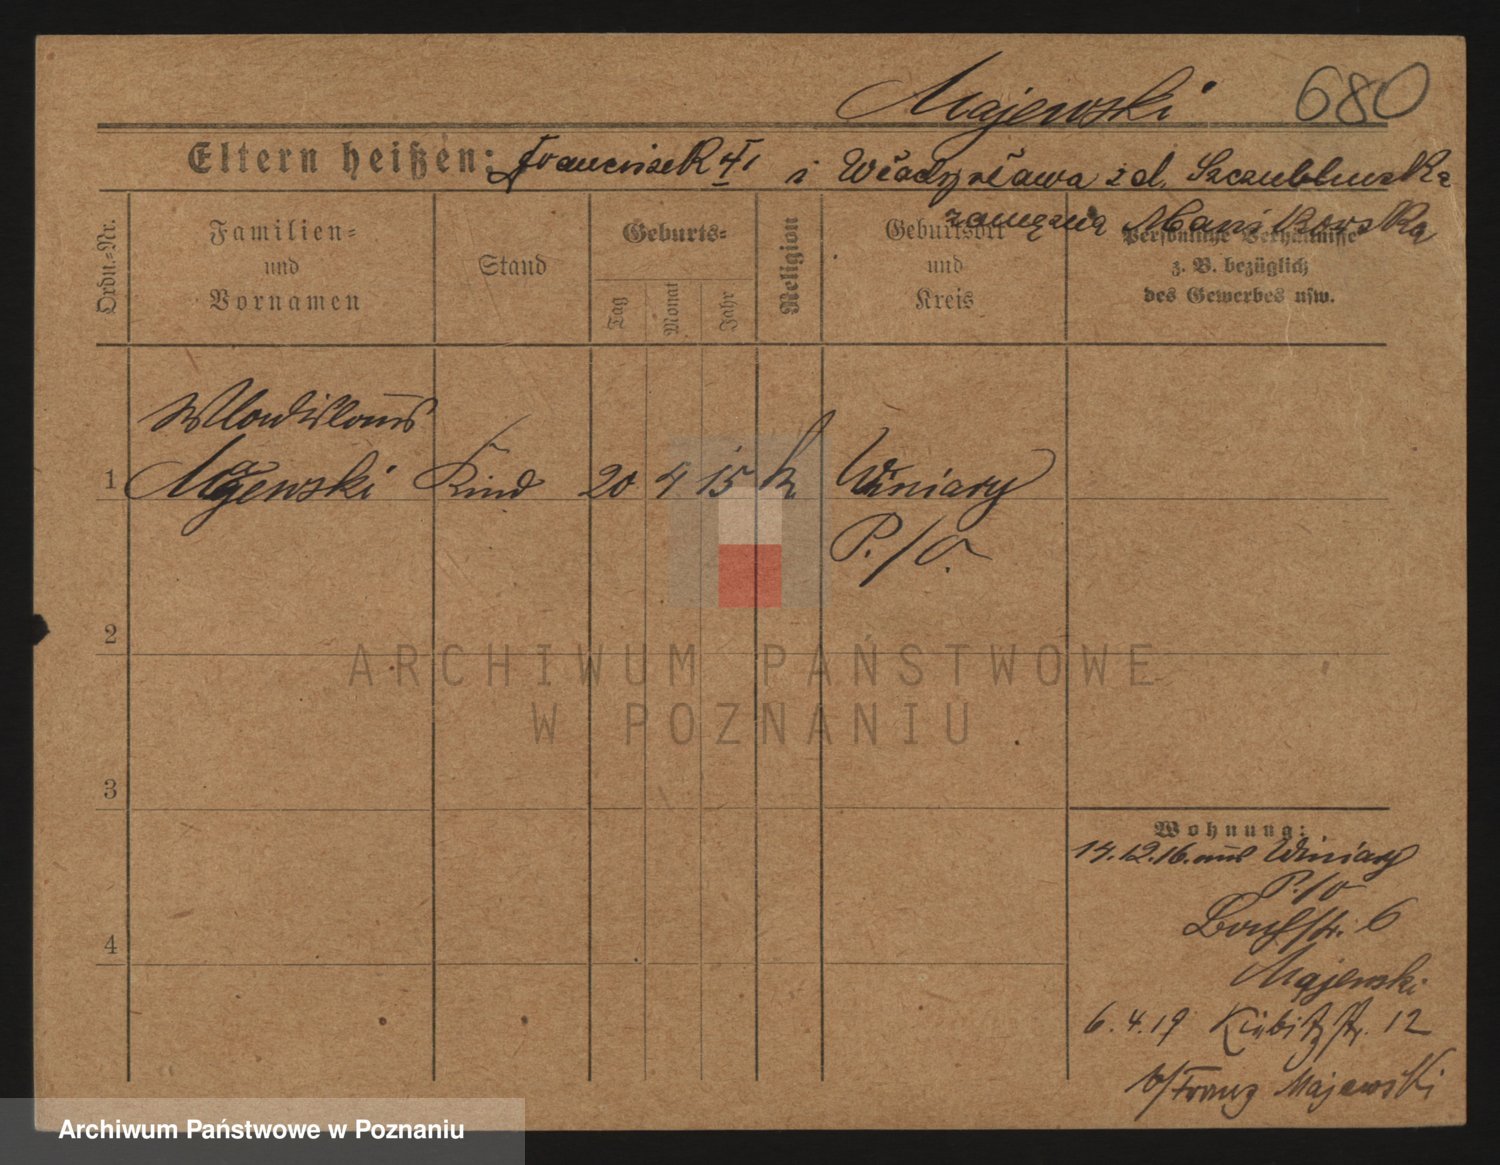 Majewski 680
Eltern heißen: Franciszek i Władysława zd.
zamężna Manikowska
Ordn.-Nr.
Familien-
und
Vornamen
Stand
Geburts-
Tag
Monat
Jahr
Religion
Geburtsort
und
Kreis
Persönliche Verhältnisse
z. B. bezüglich
des Gewerbes usw.
Wladislaus
1 Majewski Kind 20 4 15 k Winiary
P./O.
2
ARCHIWUM PAŃSTWOWE
W POZNANIU
3
Wohnung:
14.12.16. aus Winiary
P./O
str. 6
4
Majewski
6.4.19 str. 12
b/Franz Majewski
Archiwum Państwowe w Poznaniu